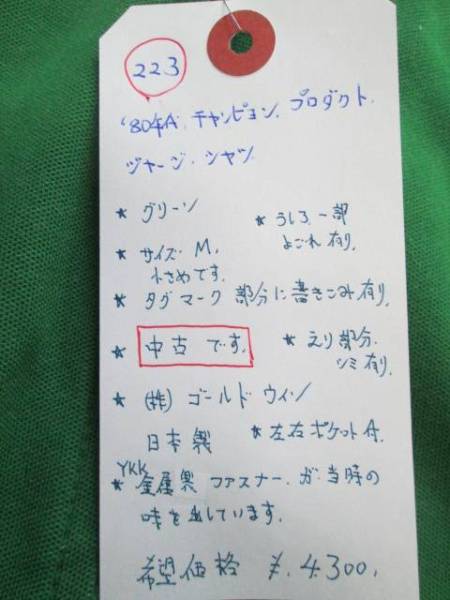 223
'80年A. チャンピョン. プロダクト.
ジャージ. シャツ
★ グリーン
★ うしろ. 一部
よごれ 有り.
★ サイズ M.
小さめです.
★ タグ マーク 部分に 書きこみ 有り.
★ 中古 です.
★ えり 部分.
シミ 有り.
★ (株) ゴールド ウィン
日本 製
★ 左右 ポケット 付.
YKK
★ 金属 製 ファスナー. が 当時の
味を 出しています.
希望 価格 ¥. 4.300.